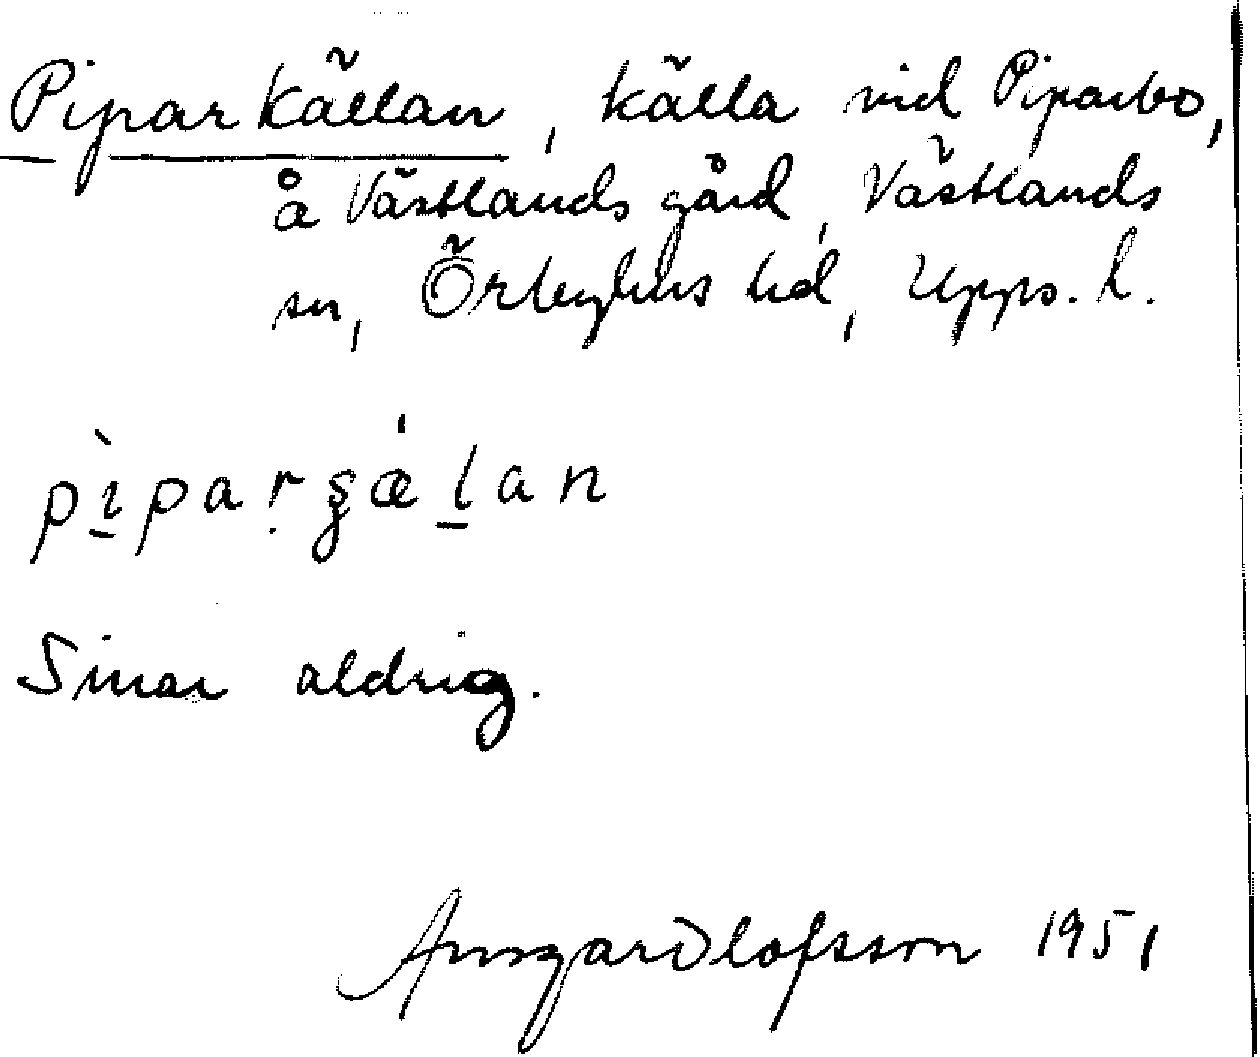 Piparkällan, källa vid Piparbo,
å Västlands gård, Västlands
sn, Örbyhus hd, Upps. l.
pìparʂǽlan
Sinar aldrig.
Ansgar Olofsson 1951